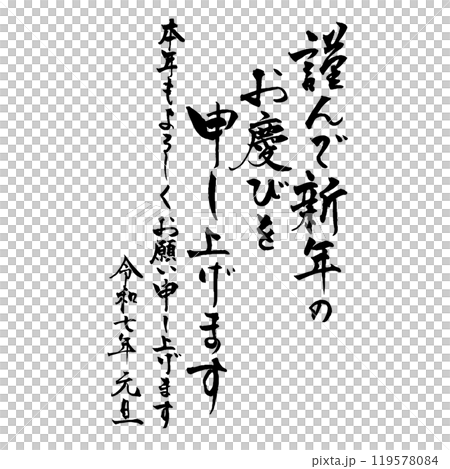 謹んで新年の
お慶びを
申し上げます
本年もよろしくお願い申し上げます
令和七年 元旦
119578084